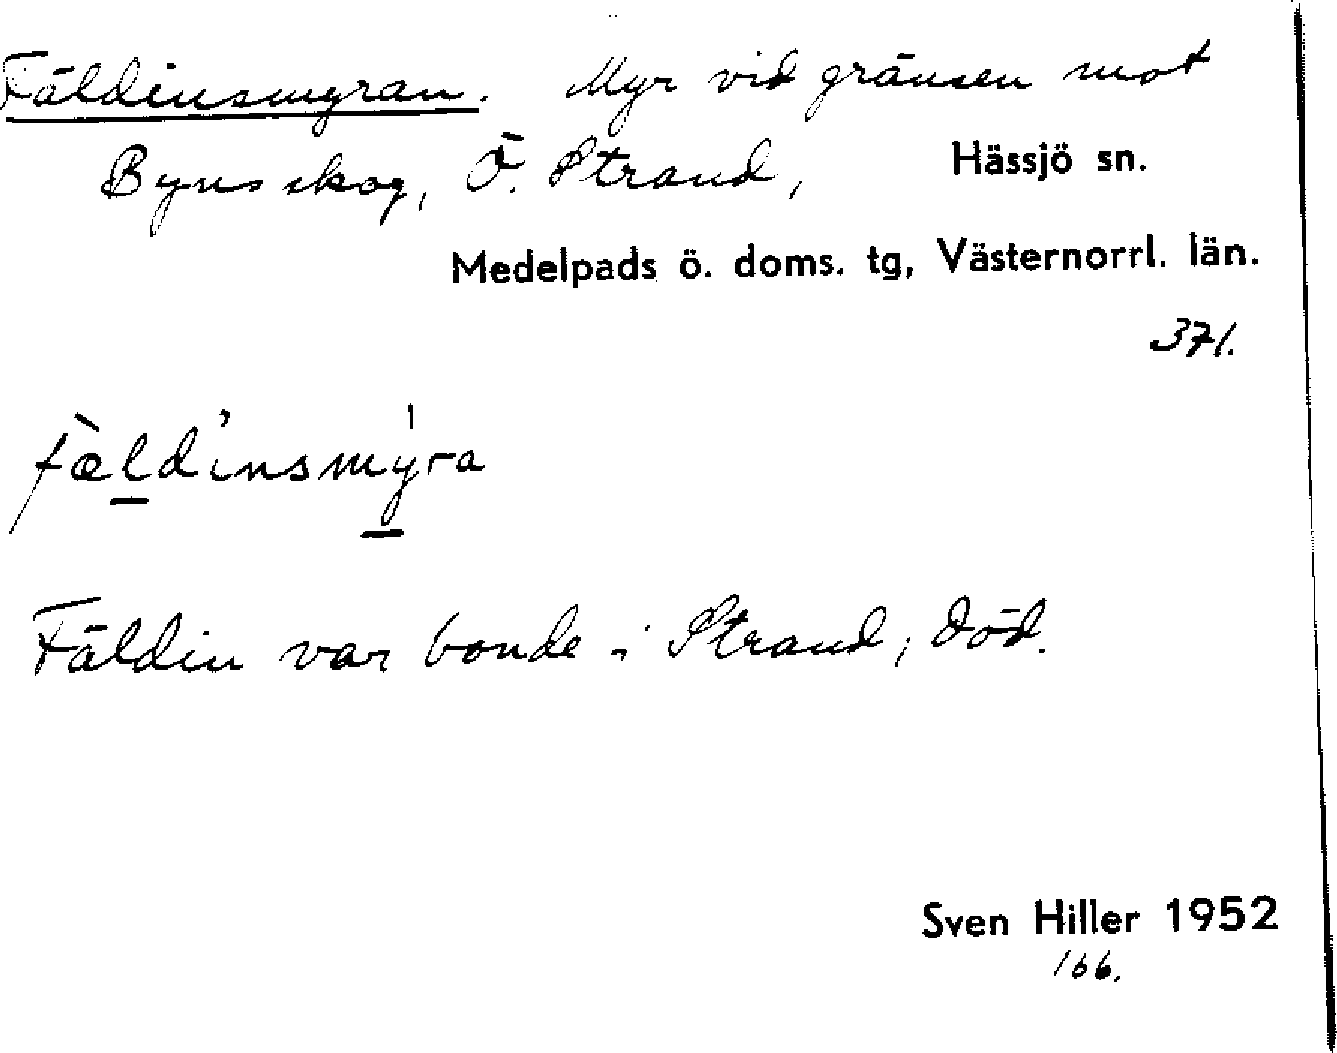 Fäldinsmyran. Myr vid gränsen mot
Byns skog, Ö. Strand, Hässjö sn.
Medelpads ö. doms. tg, Västernorrl. län.
371.
fæ̀ldinsmy̍ra
Fäldin var bonde i Strand, död.
Sven Hiller 1952
166.